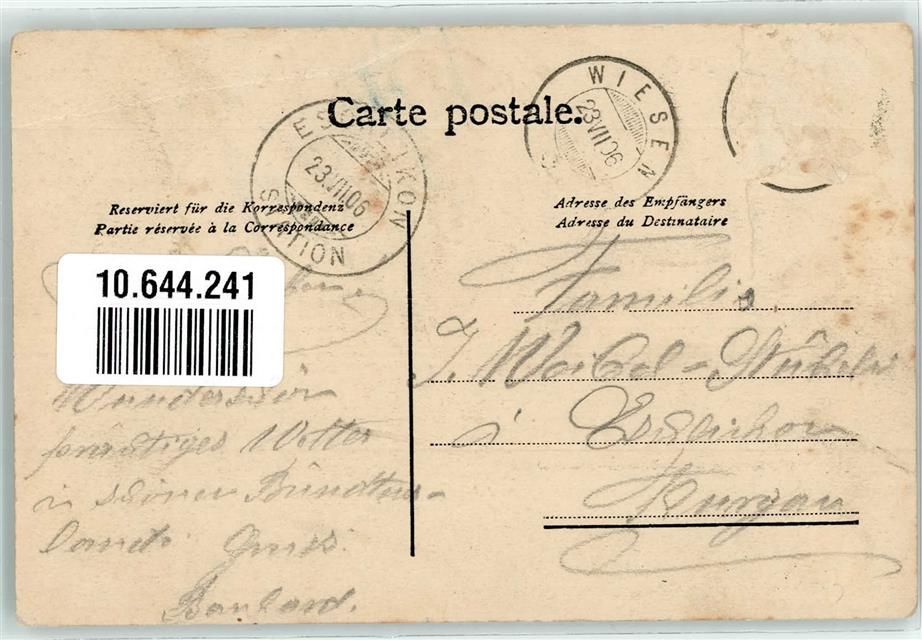 Carte postale.
WIESEN
23.VII.06
ESCHLIKON
23.VII.06
STATION
Reserviert für die Korrespondenz
Partie réservée à la Correspondance
Adresse des Empfängers
Adresse du Destinataire
10.644.241
Wunderschön
prächtiges Wetter
in schöner Bündtner-
Landt. Gruss.
Familie
J. Weibel-Stüheli
i Eschlikon
Thurgau